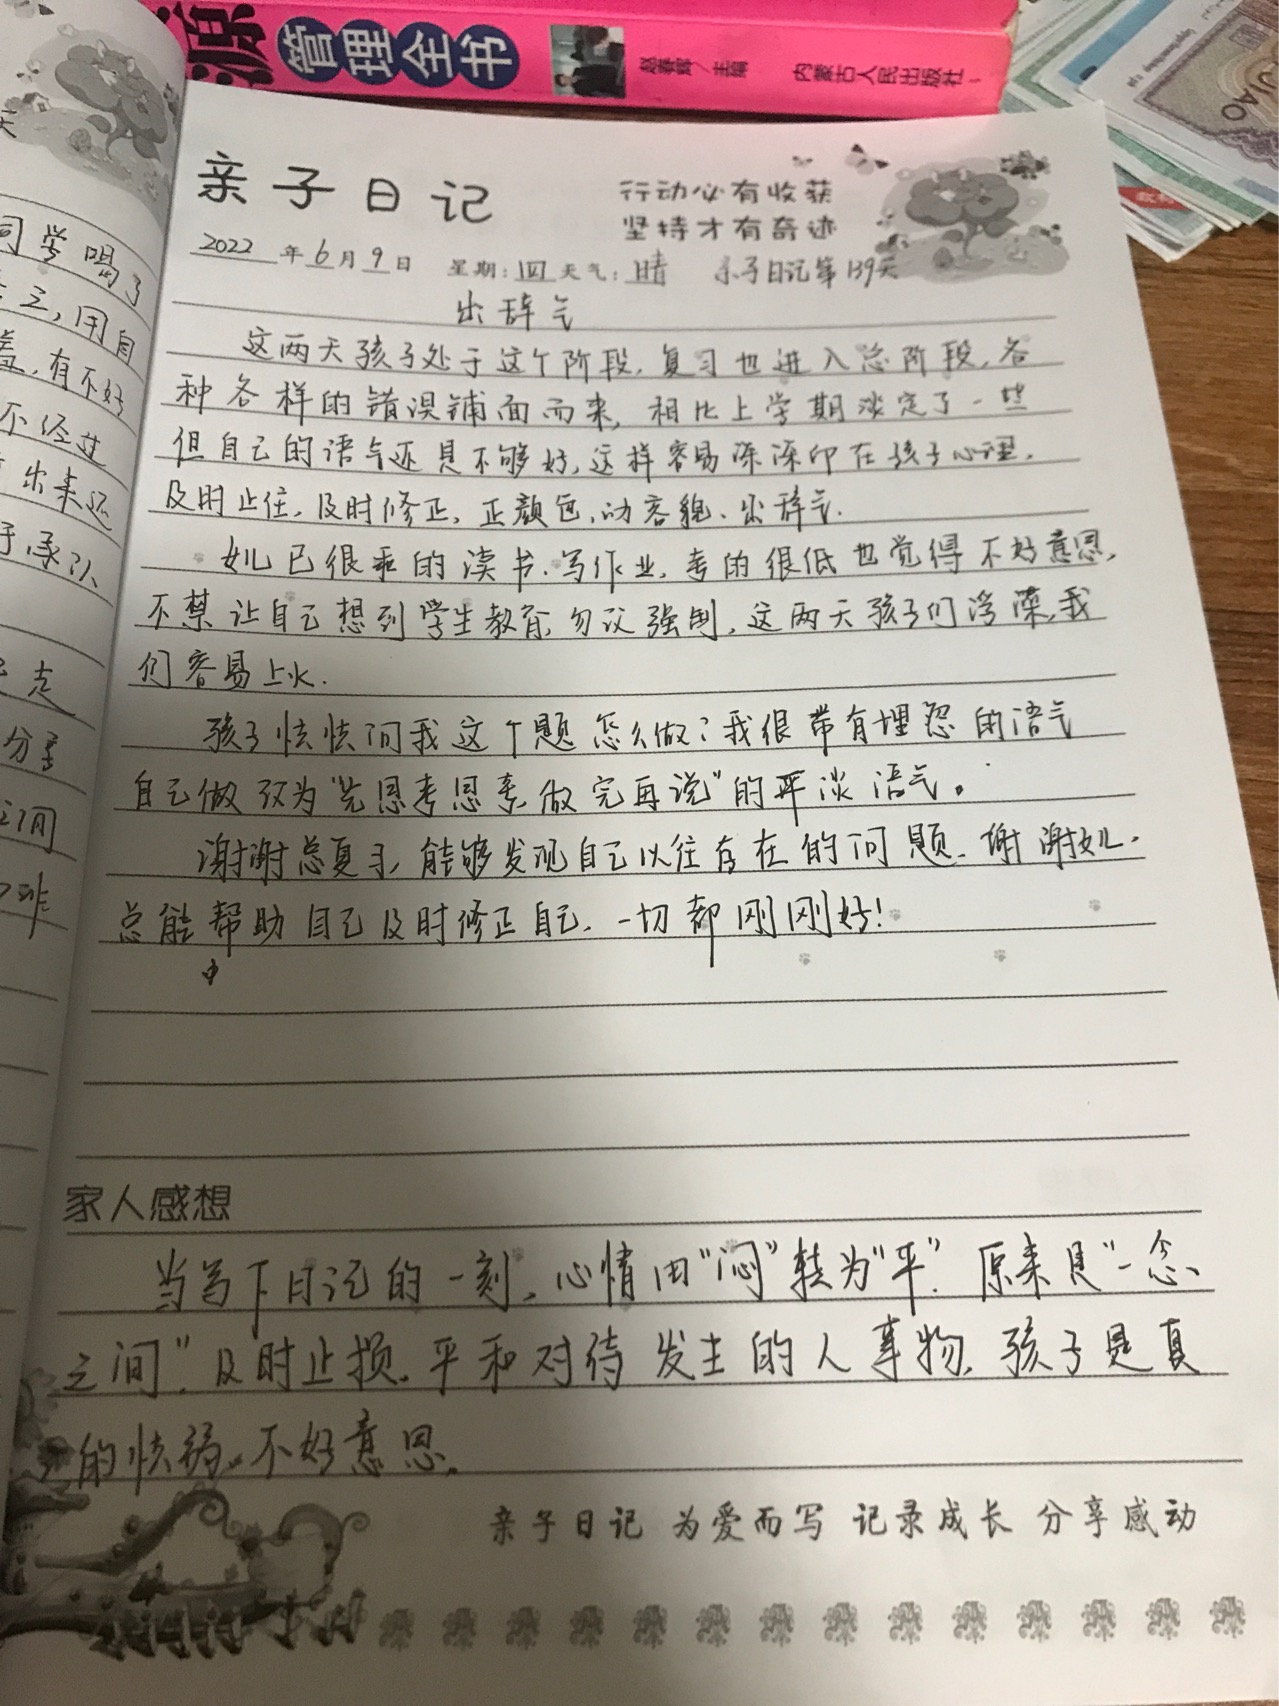 源管理全书
赵春辉/主编
内蒙古人民出版社
JIAO
教材
天
同学喝了
之,用自
有不好
不经过
出来还
走
分享
之间
亲子日记
行动必有收获
坚持才有奇迹
2022年6月9日 星期:四 天气:晴 亲子日记第139天
出辞气
这两天孩子处于这个阶段,复习也进入总阶段,各
种各样的错误铺面而来,相比上学期淡定了一些
但自己的语气还是不够好,这样容易深深印在孩子心理.
及时止住,及时修正,正颜色,动容貌、出辞气.
女儿已很乖的读书、写作业,考的很低也觉得不好意思,
不禁让自己想到学生教育,勿议强制,这两天孩子们浮躁,我
们容易上火.
孩子怯怯问我这个题怎么做?我很带有埋怨的语气
自己做改为"先思考思考,做完再说"的平淡语气。
谢谢总复习,能够发现自己以往存在的问题.谢谢女儿.
总能帮助自己及时修正自己.一切都刚刚好!
家人感想
当写下日记的一刻,心情由"闷"转为"平".原来是"一念
之间".及时止损.平和对待发生的人事物.孩子是真
的怯弱.不好意思.
亲子日记 为爱而写 记录成长 分享感动